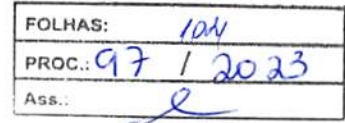 FOLHAS: 104
PROC.: 97 / 2023
Ass.: